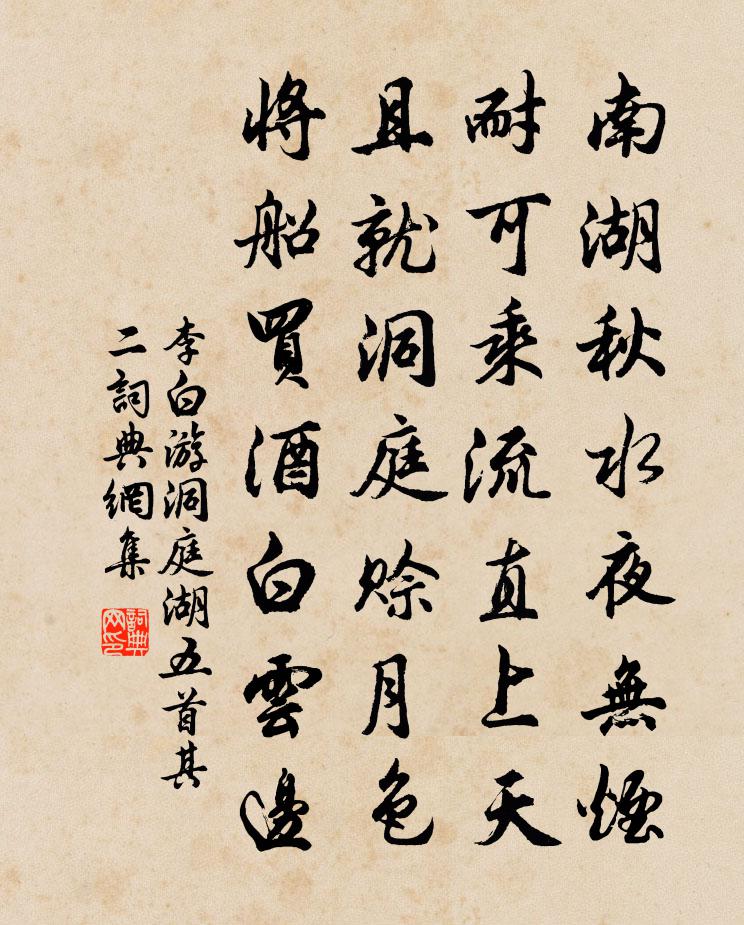 南湖秋水夜無煙
耐可乘流直上天
且就洞庭賒月色
將船買酒白雲邊
李白游洞庭湖五首其
二詞典網集
詞典
网印